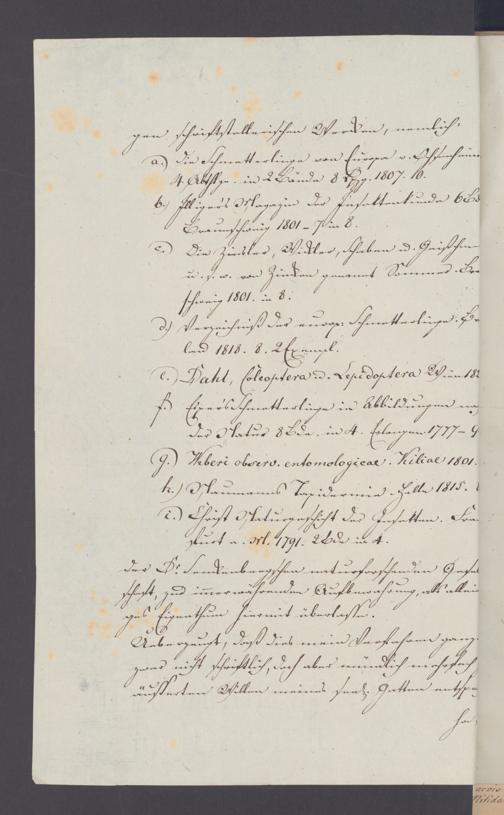 gen schriftstellerischen Werken, nemlich:
a.) Die Schmetterlinge von Europa v. Ochsenheim
4 Abthlge. in 2 Bände 8 Lpzg. 1807. 16.
b. Illigers Magazin der Insektenkunde 6 Bd
Braunschweig 1801 – 7 in 8.
c.) Die Zünsler, Wickler, Schaben u. Geistchen
u. s. w. von Zinken genannt Sommer. Bra
schweig 1801. in 8.
d.) Verzeichniß der europ: Schmetterlinge.
land 1818. 8. 2 Exempl.
e.) Dahl, Coleoptera u. Lepidoptera Wien 182
f.) Esper's Schmetterlinge in Abbildungen na
der Natur 8 Bde. in 4. Erlangen 1777 – 9
g.) Weberi observ. entomologicae. Kiliae 1801.
h.) Naumanns Taxidermie. Halle 1815.
i.) Christ Naturgeschicht der Insekten. Fran
furt a. M. 1791. 2 Bde in 4.
der Dr. Senkenbergschen naturforschenden Gesel
schaft, zur immerwährenden Aufbewahrung, als allein
ges Eigenthum hiermit überlasse.
Ueberzeugt, daß dies mein Verfahren ganz
zwar nicht schriftlich, doch aber mündlich mehrfach
äusserten Willen meines seel. Gatten entspr